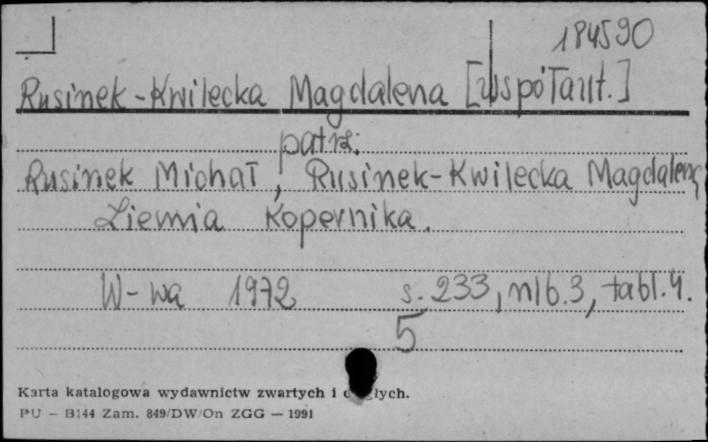 184590
Rusinek-Kwilecka Magdalena [współaut.]
patrz:
Rusinek Michał, Rusinek-Kwilecka Magdalena
Ziemia Kopernika.
W-wa 1972 s. 233, nlb. 3, tabl. 4.
5
Karta katalogowa wydawnictw zwartych i
PU - B144 Zam. 849/DW/On ZGG — 1991